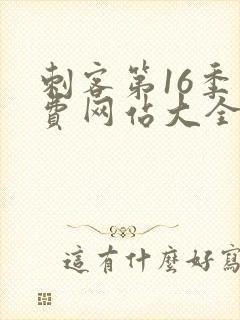 刺客第16季
費网佔大全
這有什麼好寫